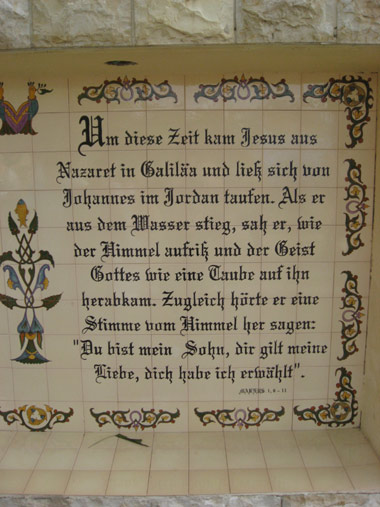 Um diese Zeit kam Jesus aus
Nazaret in Galiläa und ließ sich von
Johannes im Jordan taufen. Als er
aus dem Wasser stieg, sah er, wie
der Himmel aufriß und der Geist
Gottes wie eine Taube auf ihn
herabkam. Zugleich hörte er eine
Stimme vom Himmel her sagen:
"Du bist mein Sohn, dir gilt meine
Liebe, dich habe ich erwählt".
MARKUS 1, 9 - 11